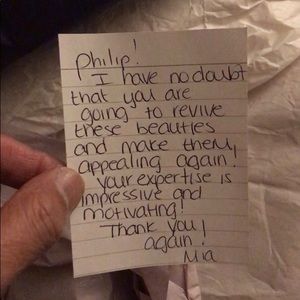 Philip!
I have no doubt
that you are
going to revive
these beauties
and make them
appealing again!
Your expertise is
impressive and
motivating!
Thank you
again!
Mia